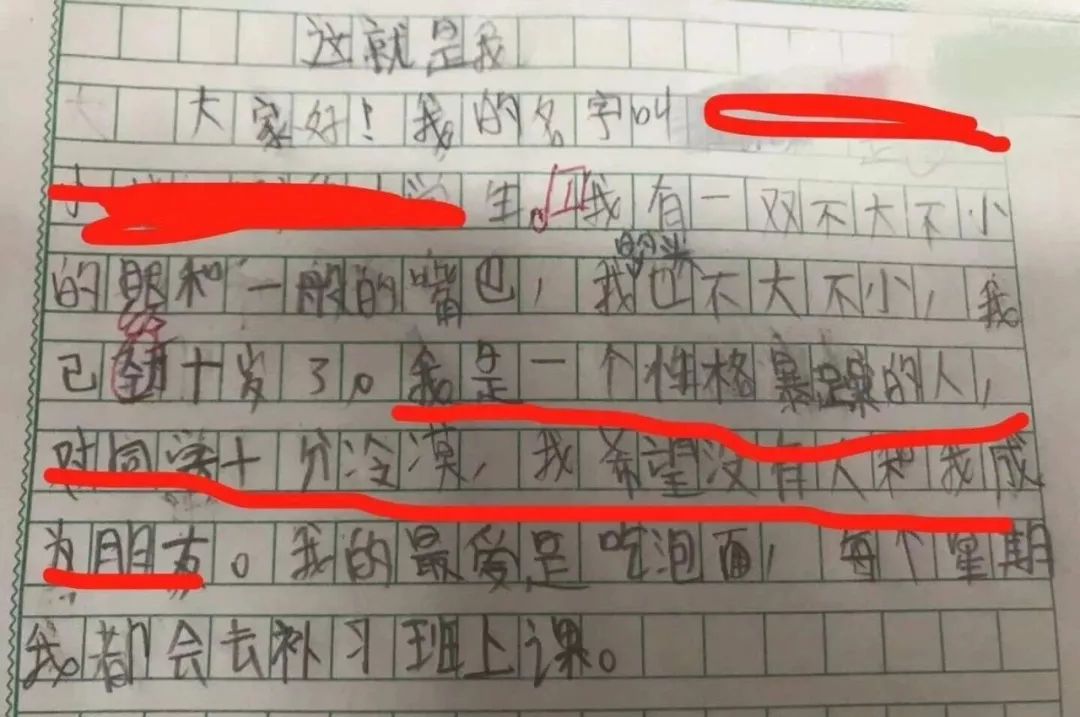 这就是我
大家好！我的名字叫
生。我有一双不大不小
的眼和一般的嘴巴，我的头也不大不小，我
已经十岁了。我是一个性格暴躁的人，
对同学十分冷漠，我希望没有人和我成
为朋友。我的最爱是吃泡面，每个星期
我都会去补习班上课。